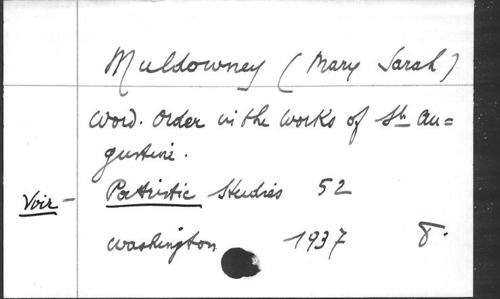 Muldowney (Mary Sarah)
Word. Order in the works of St. Au=
gustine.
Voir - Patristic Studies 52
Washington 1937 8.